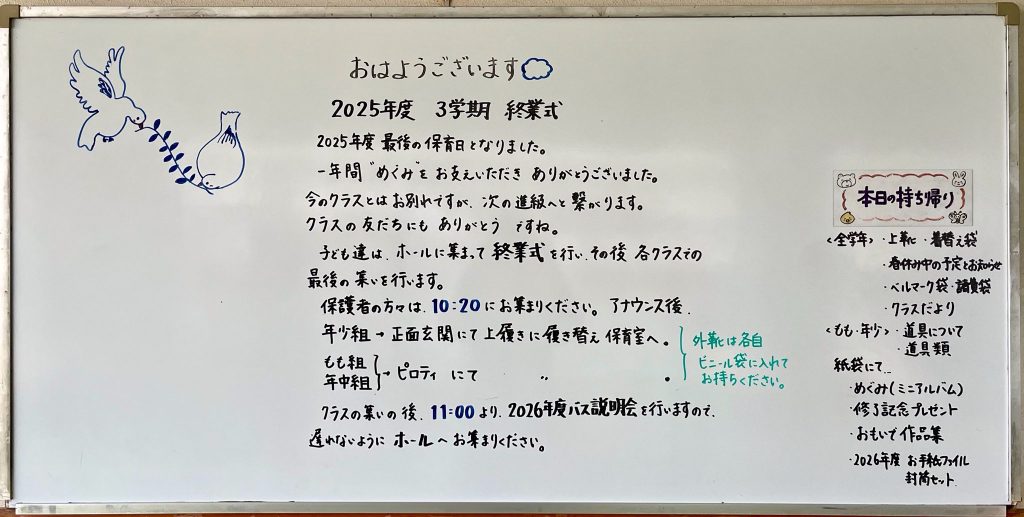 おはようございます
2025年度 3学期 終業式
2025年度 最後の保育日となりました。
一年間 "めぐみ"を お支えいただき ありがとうございました。
今のクラスとは お別れですが、次の進級へと 繋がります。
クラスの 友だちにも ありがとう ですね。
子ども達は、ホールに集まって 終業式を行い、その後 各クラスでの
最後の 集いを行います。
保護者の方々は、10:20 にお集まりください。アナウンス後、
年少組 → 正面玄関にて 上履きに 履き替え 保育室へ。
もも組
年中組 → ピロティ にて 〃 。
外靴は各自
ビニール袋に入れて
お持ちください。
クラスの集いの後、11:00 より、2026年度バス説明会を行いますので、
遅れないように ホールへお集まりください。
本日の持ち帰り
<全学年>・上靴・着替え袋
・春休み中の予定とお知らせ
・ベルマーク袋・諸費袋
・クラスだより
<もも・年少>・道具について
・道具類
紙袋にて…
・めぐみ(ミニアルバム)
・修了記念プレゼント
・おもいで作品集
・2026年度 お手紙ファイル
封筒セット